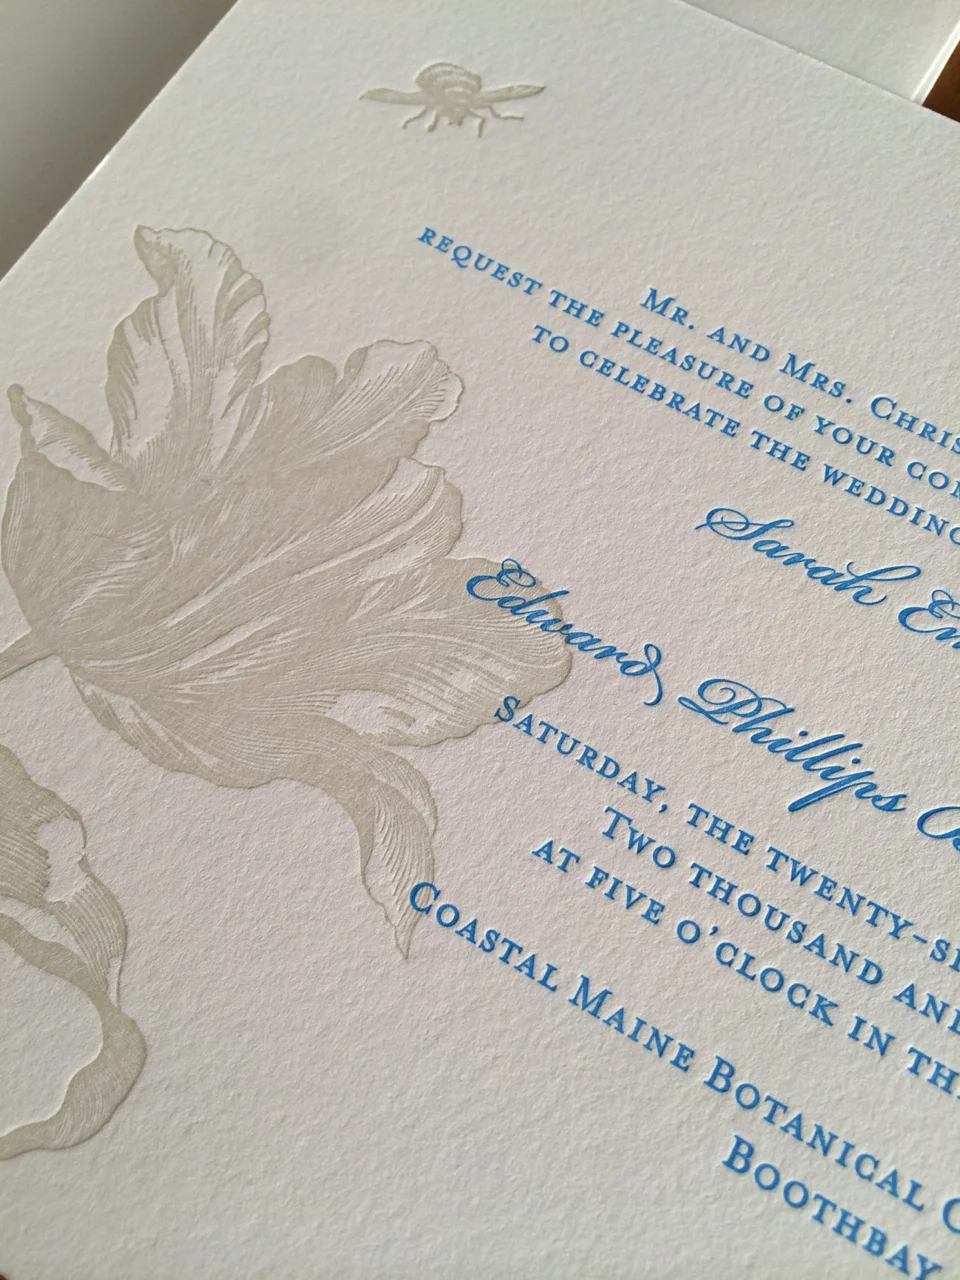 Mr. and Mrs. Chris
request the pleasure of your com
to celebrate the wedding
Sarah Em
Edward Phillips
Saturday, the twenty-si
Two thousand and
at five o'clock in the
Coastal Maine Botanical G
Boothbay